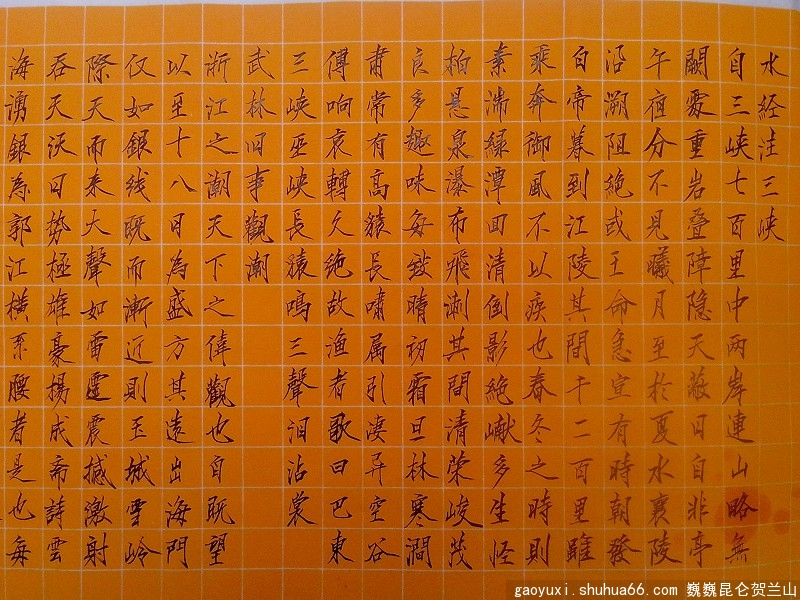 水经注三峡
自三峡七百里中两岸連山略無
闕處重岩叠障隐天蔽日自非亭
午夜分不見曦月至於夏水襄陵
沿溯阻絶或王命急宣有時朝發
白帝暮到江陵其間千二百里雖
乘奔御風不以疾也春冬之時則
素湍緑潭回清倒影絶巘多生怪
柏悬泉瀑布飛漱其間清荣峻茂
良多趣味每晴初霜旦林寒澗
肅常有高猿長嘯属引凄异空谷
傅响哀轉久绝故渔者歌曰巴東
三峡巫峡長猿鳴三聲泪沾裳
武林旧事觀潮
浙江之潮天下之偉觀也自既望
以至十八日為盛方其遠出海門
仅如銀线既而漸近則玉城雪岭
際天而来大聲如雷霆震撼激射
吞天沃日势極雄豪揚成斋詩雲
海湧銀為郭江横系腰者是也每
gaoyuxi.shuhua66.com 巍巍昆仑贺兰山